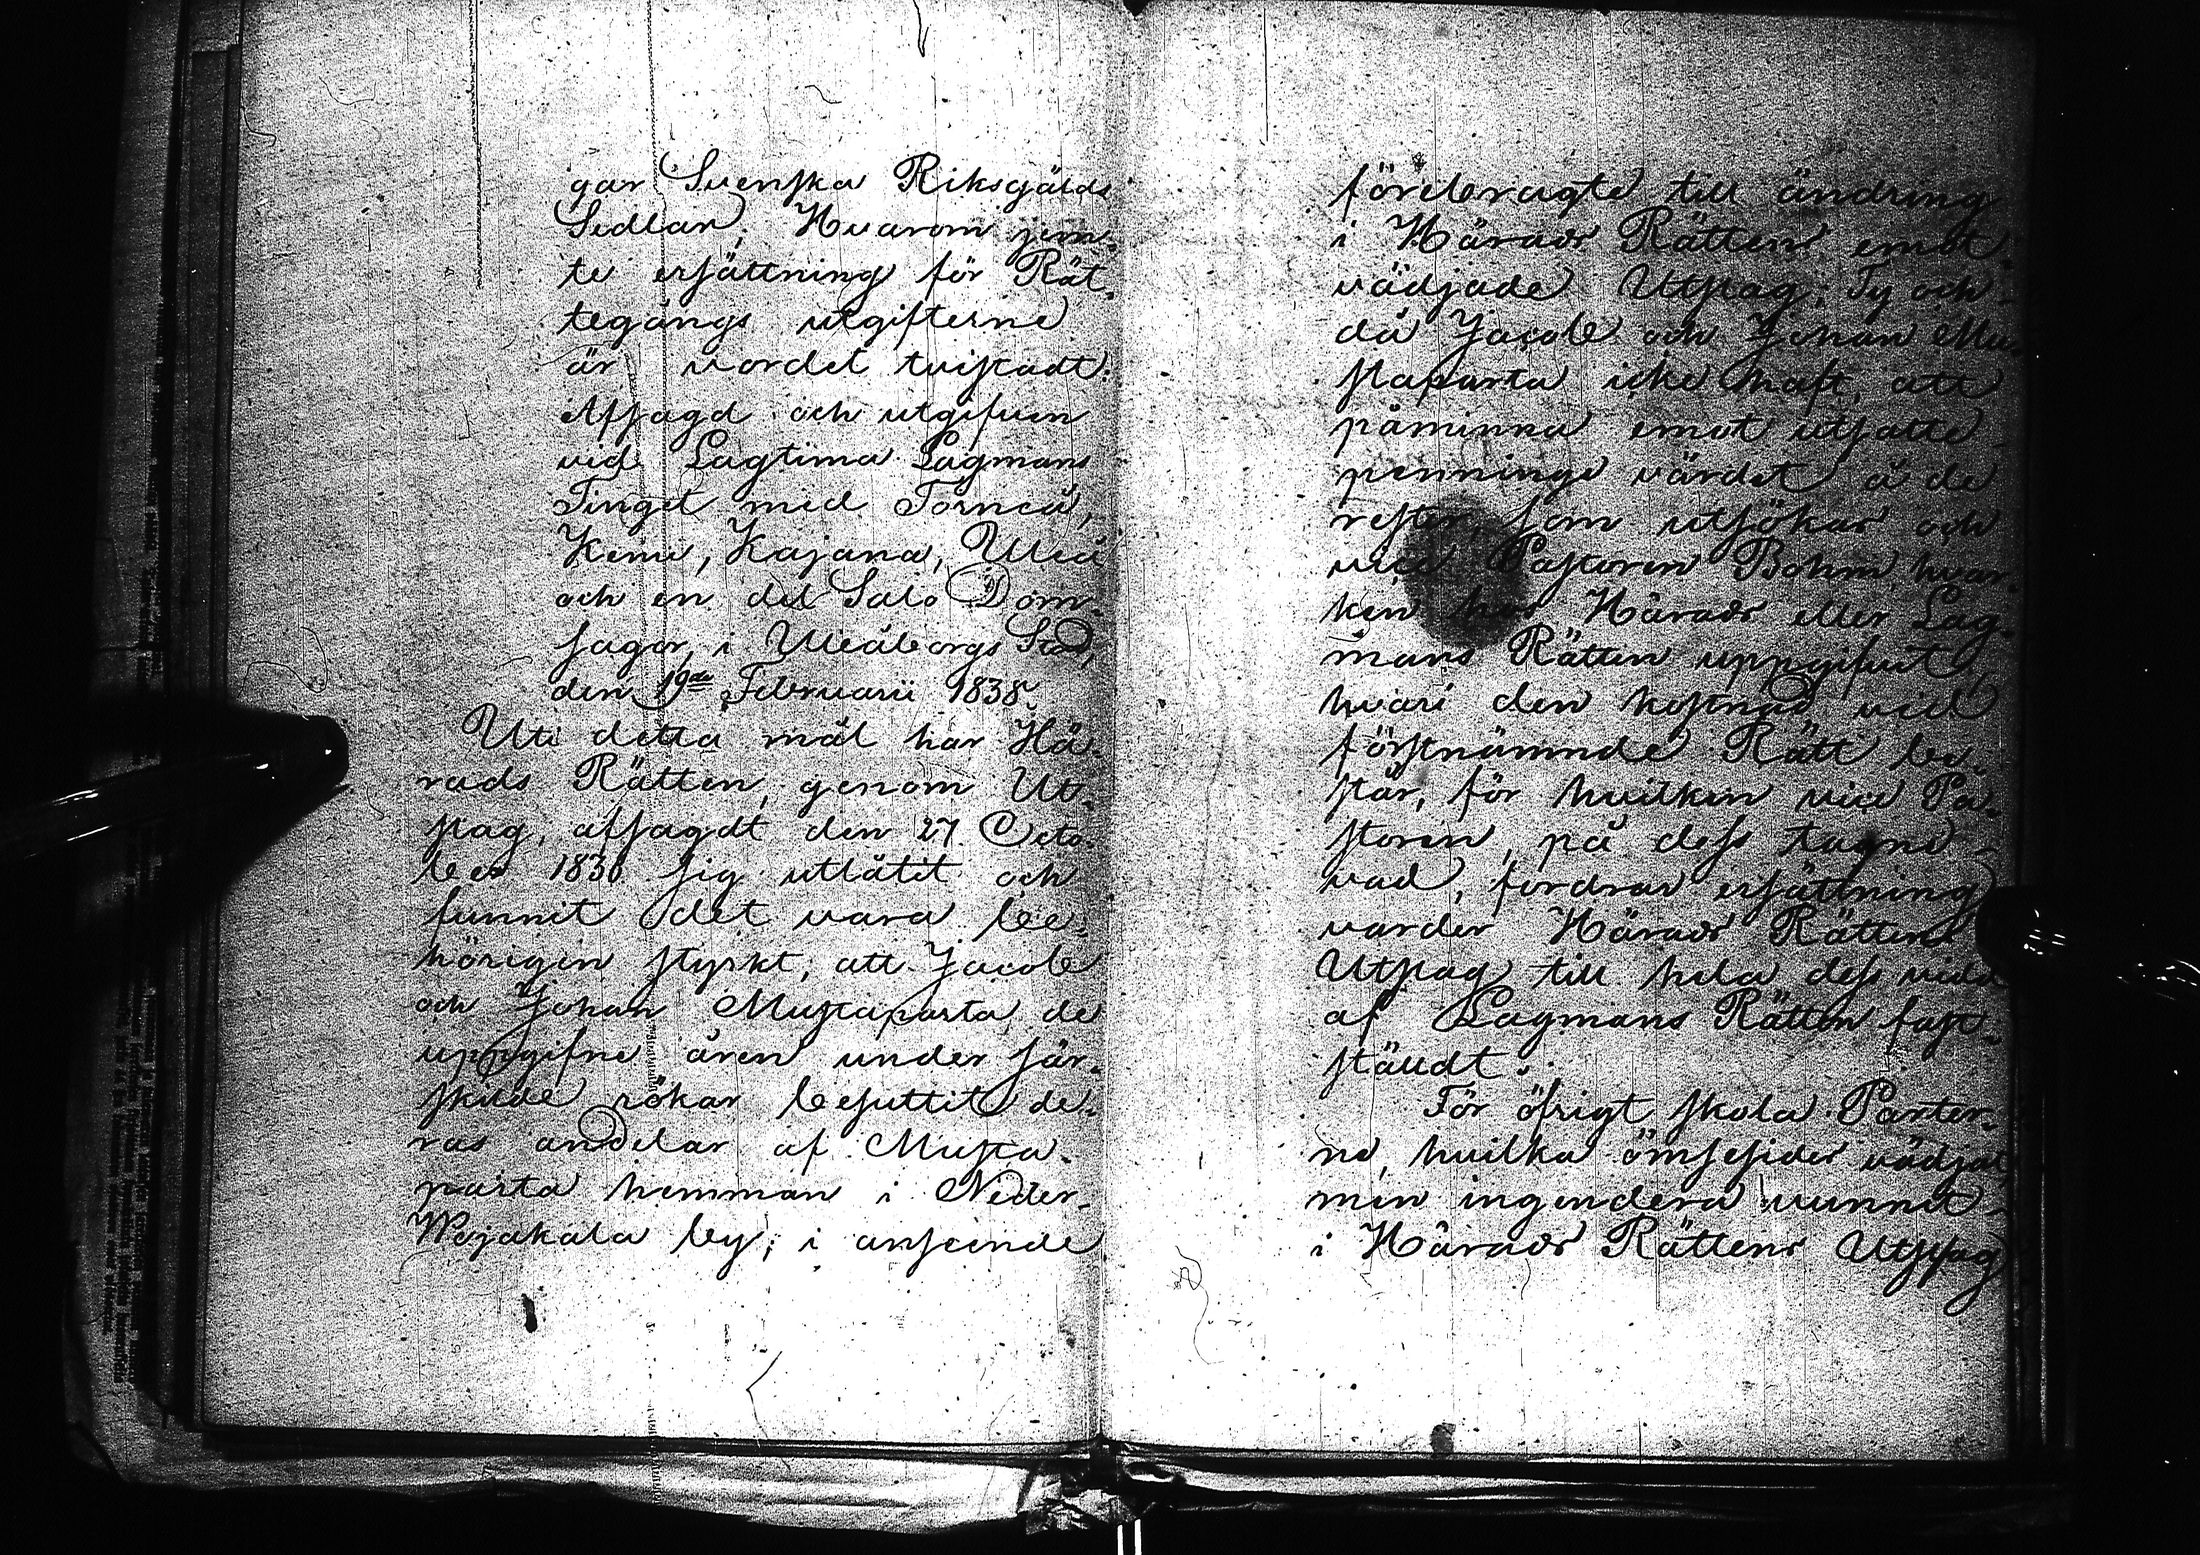 gar Svenska Riksgälds
Sedlar; Hvarom jem-
te ersättning för Rät-
tegångs utgifterne
är vordet tvistadt.
Afsagd och utgifven
vid Lagtima Lagmans
Tinget med Torneå,
Kemi, Kajana, Uleå
och en del Salo Dom-
sagor, i Uleåborgs Stad,
den 19de Februarii 1838.
Uti detta mål har Hä-
rads Rätten, genom Ut-
slag, afsagdt den 27. Octo-
ber 1836 sig utlåtit och
funnit det vara be-
hörigen styrkt, att Jacob
och Johan Mustaparta, de
uppgifne åren under sär-
skilde rökar besuttit de-
ras andelar af Musta-
parta hemman i Neder-
Wojakala by; i anseende
förebragte till ändring
i Härads Rättens emot-
vädjade Utslag; Ty och
då Jacob och Johan Mu-
staparta icke haft, att
påminna emot utsatte
penninge värdet å de
rester, som utsökas och
vice Pastoren Bohm, hvar-
ken hos Härads eller Lag-
mans Rätten uppgifvit,
hvari den kostnad vid
förstnämnde Rätt be-
står, för hvilken vice Pa-
storen, på dess tagne
vad, fordrar ersättning
varder Härads Rättens
Utslag till hela dess vidd
af Lagmans Rätten fast-
stäldt.
För öfrigt skola Parter-
ne, hvilka ömsesides vädjat,
men ingendera vunnit
i Härads Rättens Utslag